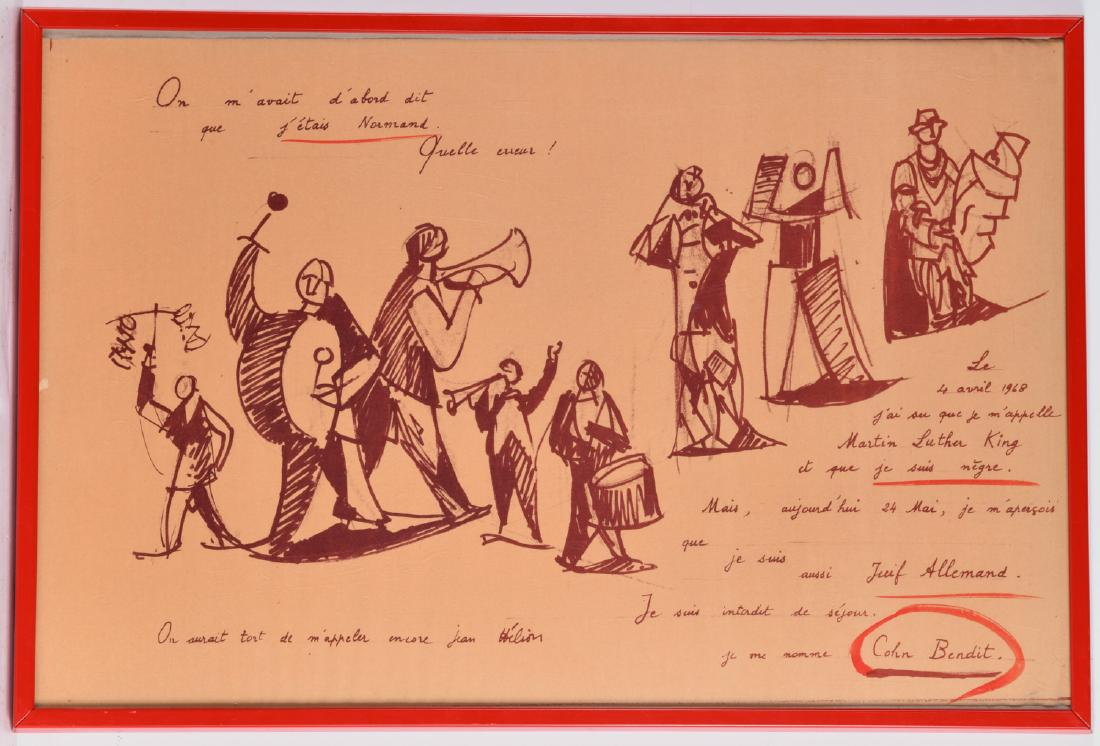 On m'avait d'abord dit
que j'étais Normand.
Quelle erreur !
Le
4 avril 1968
j'ai su que je m'appelle
Martin Luther King
et que je suis nègre.
Mais, aujourd'hui 24 Mai, je m'aperçois
que
je suis
aussi Juif Allemand.
Je suis interdit de séjour.
On aurait tort de m'appeler encore jean Hélion
je me nomme Cohn Bendit.